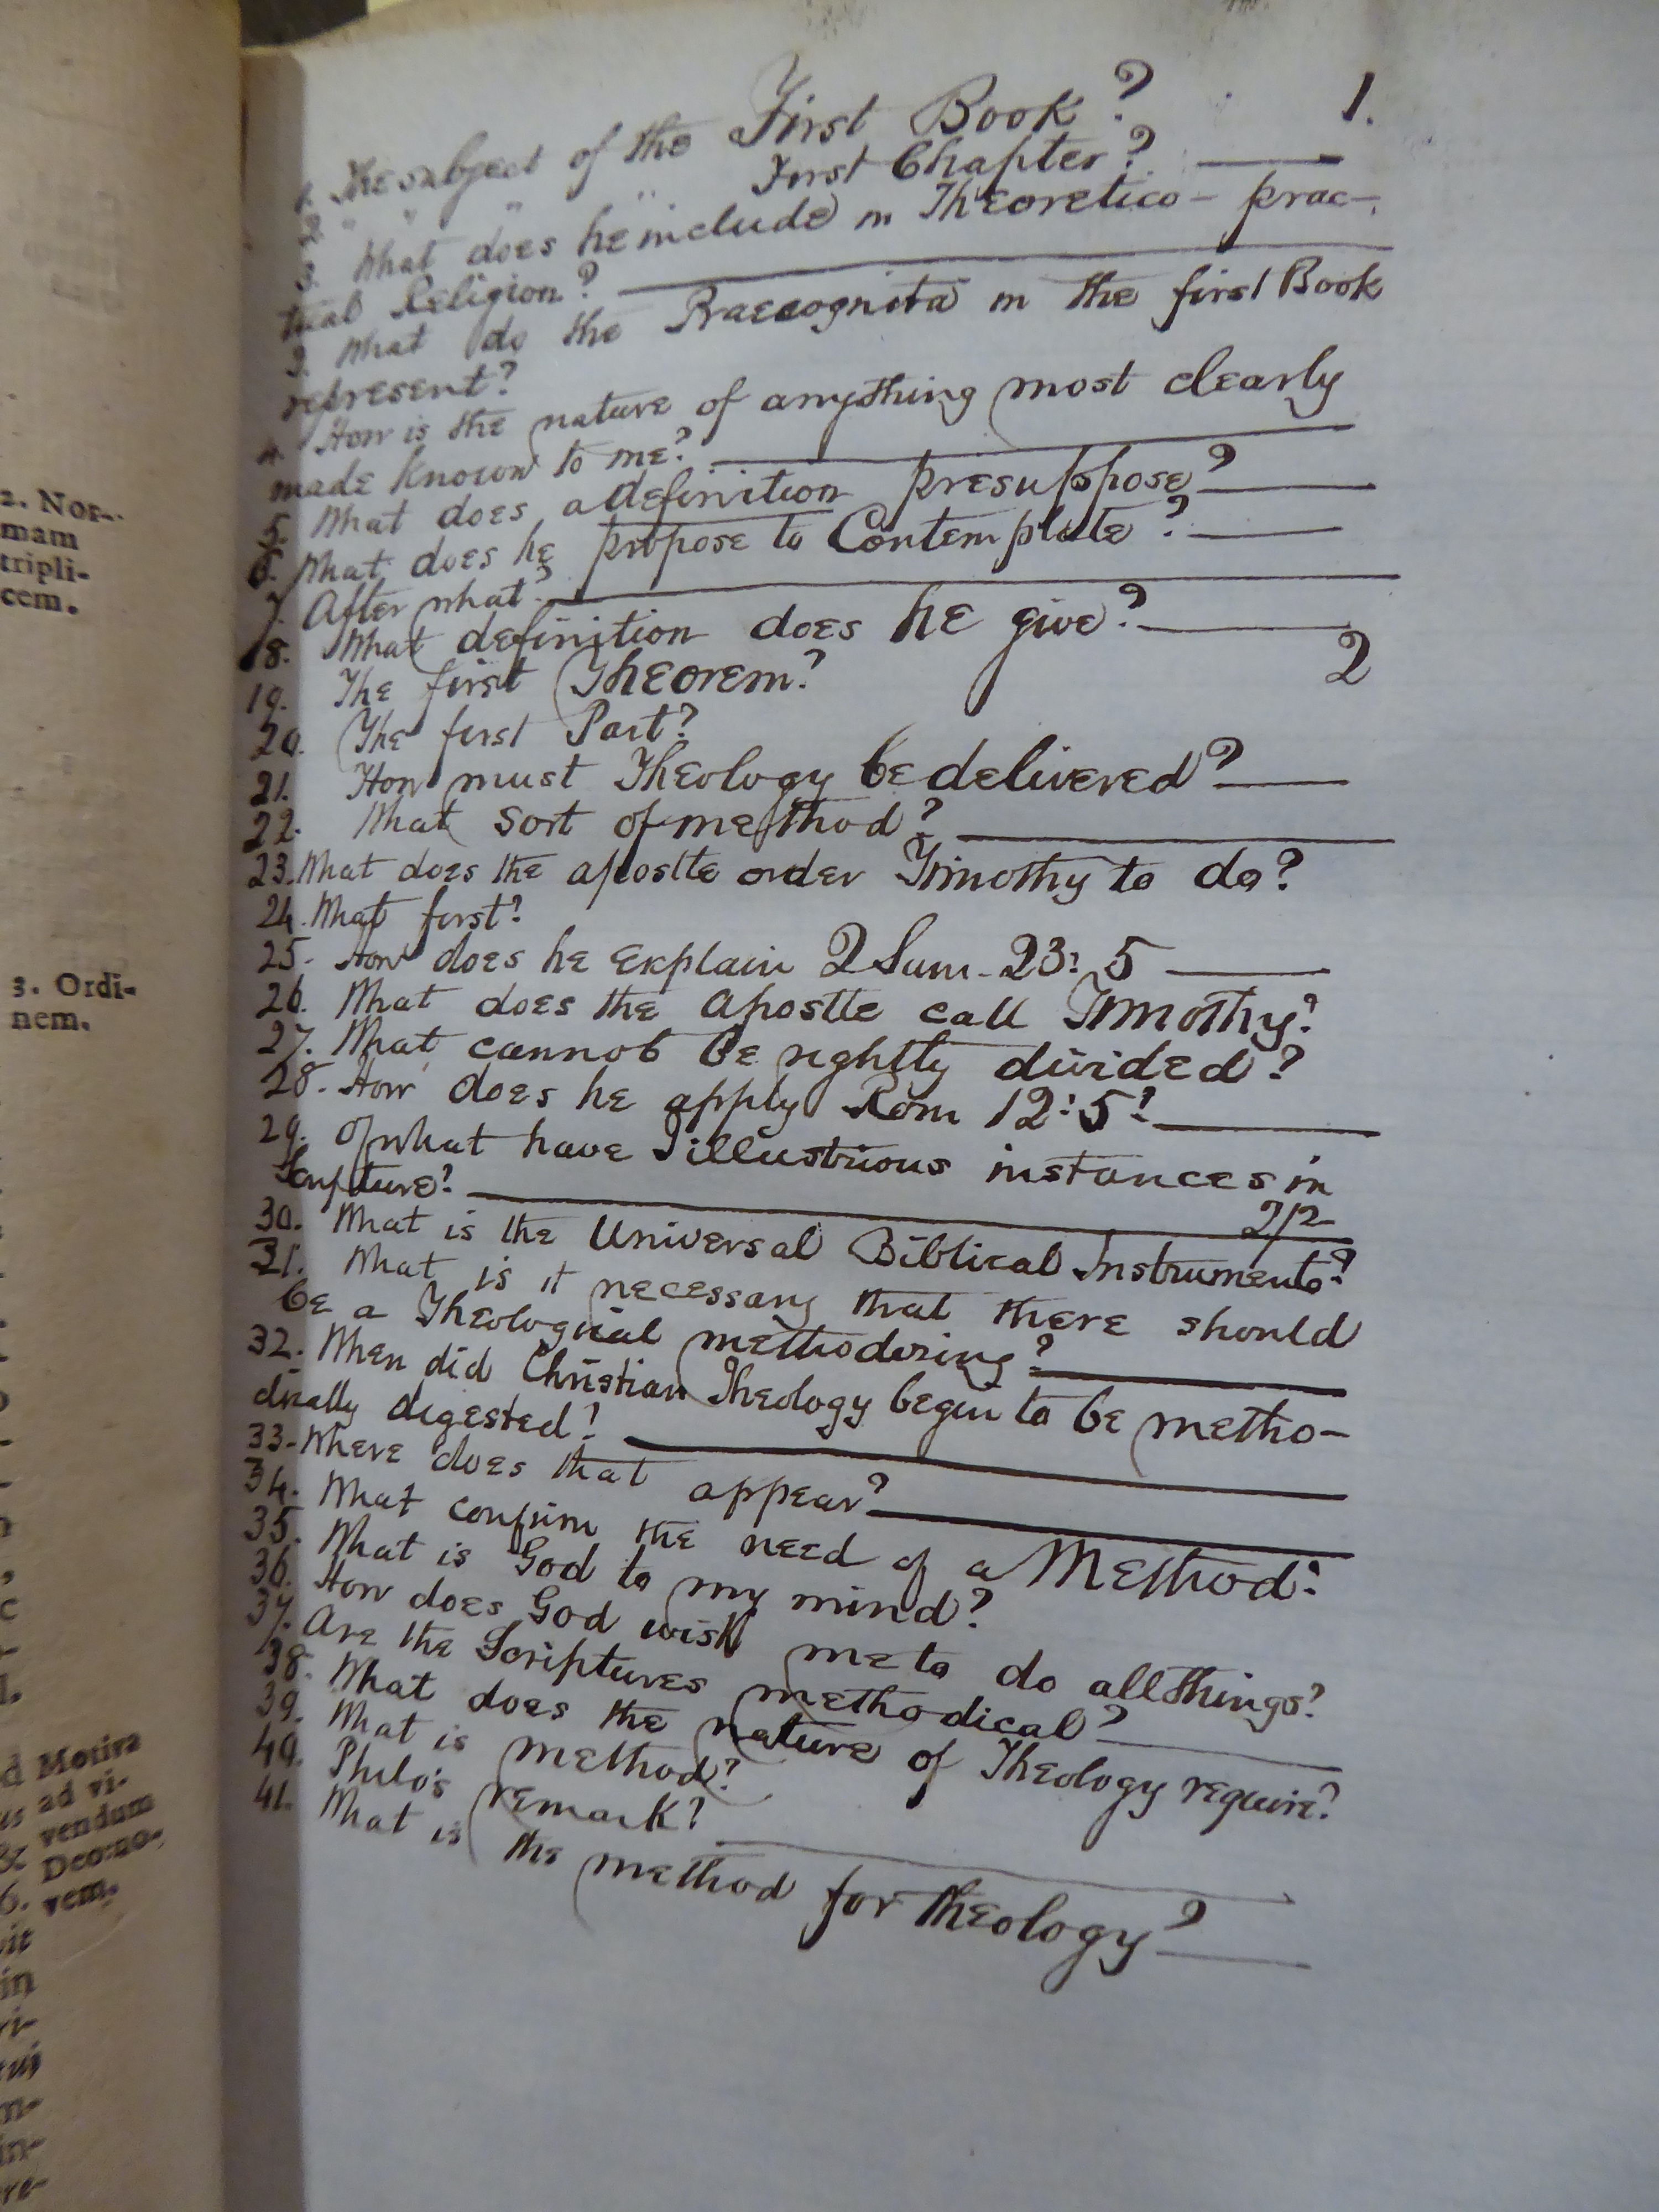 2. Nor-
mam
tripli-
cem.
3. Ordi-
nem.
d Motiva
us ad vi-
& vendum
Deo: no-
6. vem.
vit
in
ri-
tui
n-
in-
re-
1.
1. The subject of the First Book?
2. " " " " First Chapter?
3. What does he include in Theoretico - prac-
tical Religion?
3. What do the Praecognita in the first Book
represent?
4. How is the nature of anything most clearly
made known to me?
5. What does a definition presuppose?
6. What does he propose to Contemplate?
7. After what?
18. What definition does he give?
2
19. The first Theorem?
20. The first Part?
21. How must Theology be delivered?
22. What sort of method?
23. What does the apostle order Timothy to do?
24. What first?
25. How does he explain 2 Sam - 23: 5
26. What does the apostle call Timothy?
27. What cannot be rightly divided?
28. How does he apply Rom 12:5?
29. Of what have I illustrious instances in
Scripture?
30. What is the Universal Biblical Instrument?
31. What is it necessary that there should
be a Theological methodizing?
32. When did Christian Theology begin to be metho-
dically digested?
33. Where does that appear?
34. What confirm the need of a Method?
35. What is God to my mind?
36. How does God wish me to do all things?
37. Are the Scriptures methodical?
38. What does the nature of Theology require?
39. What is method?
40. Philo's remark?
41. What is the method for theology?